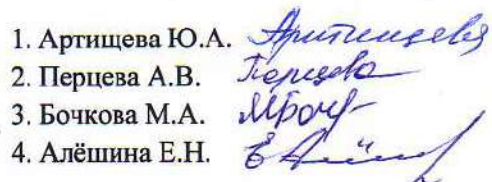 1. Артищева Ю.А. Артищева
2. Перцева А.В. Перцева
3. Бочкова М.А. МБоч
4. Алёшина Е.Н.